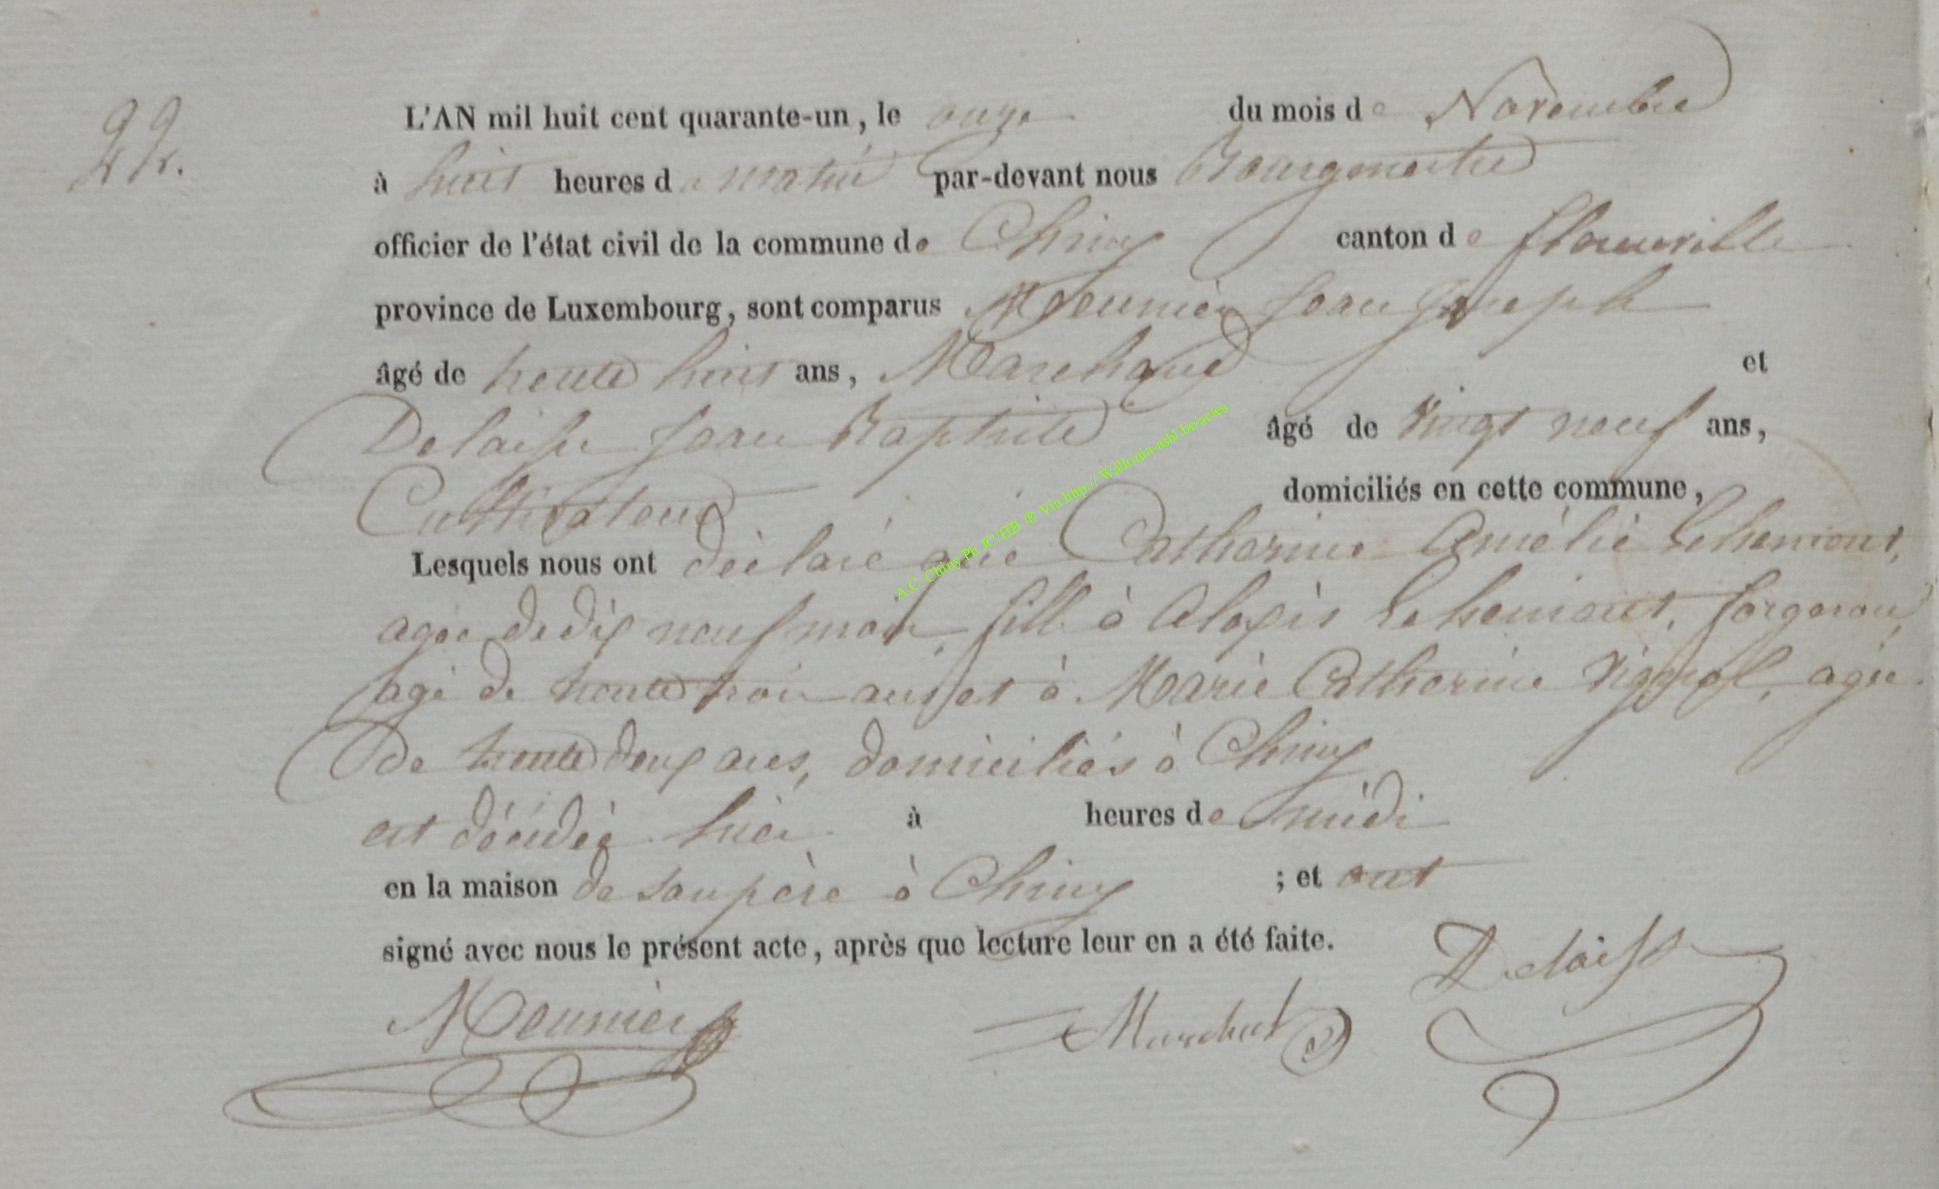 22.
L'AN mil huit cent quarante-un, le onze du mois de Novembre
à huit heures du matin par-devant nous Bourgmestre
officier de l'état civil de la commune de Chiny canton de florenville
province de Luxembourg, sont comparus Meunier Jean Joseph
âgé de trente huit ans, Marchand et
Delaisse Jean Baptiste âgé de vingt neuf ans,
Cultivateur domiciliés en cette commune,
Lesquels nous ont déclaré que Catherine Amélie
agée de dix neuf mois, fille à Alexis forgeron,
agé de trente trois ans et à Marie Catherine agée
de trente deux ans, domiciliés à Chiny
est décédée hier à heures de midi
en la maison de son père à Chiny ; et ont
signé avec nous le présent acte, après que lecture leur en a été faite.
Delaisse
Meunier Marchal